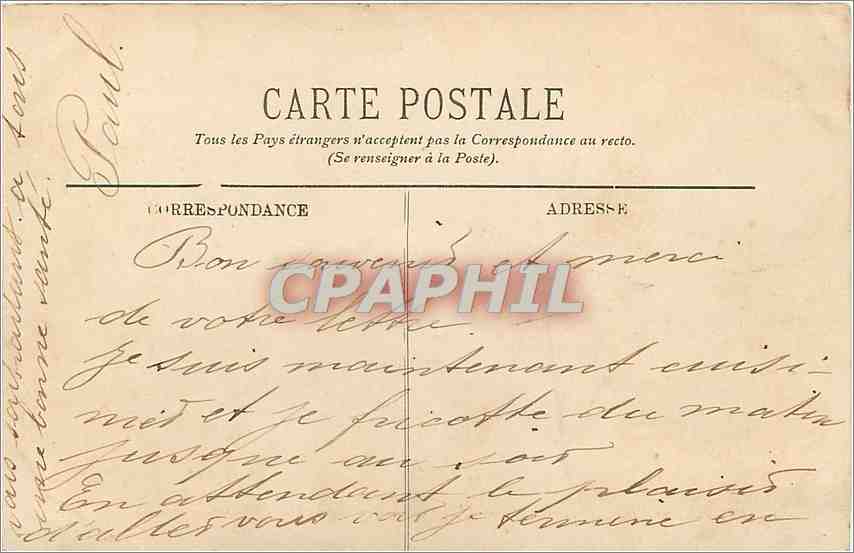 CARTE POSTALE
Tous les Pays étrangers n'acceptent pas la Correspondance au recto.
(Se renseigner à la Poste).
CORRESPONDANCE
ADRESSE
CPAPHIL
Bon souvenir et merci
de votre lettre
je suis maintenant cuisi-
nier et je fricotte du matin
jusque au soir
En attendant le plaisir
d'aller vous voir je termine en
souhaitant a tous
une bonne santé.
Paul.